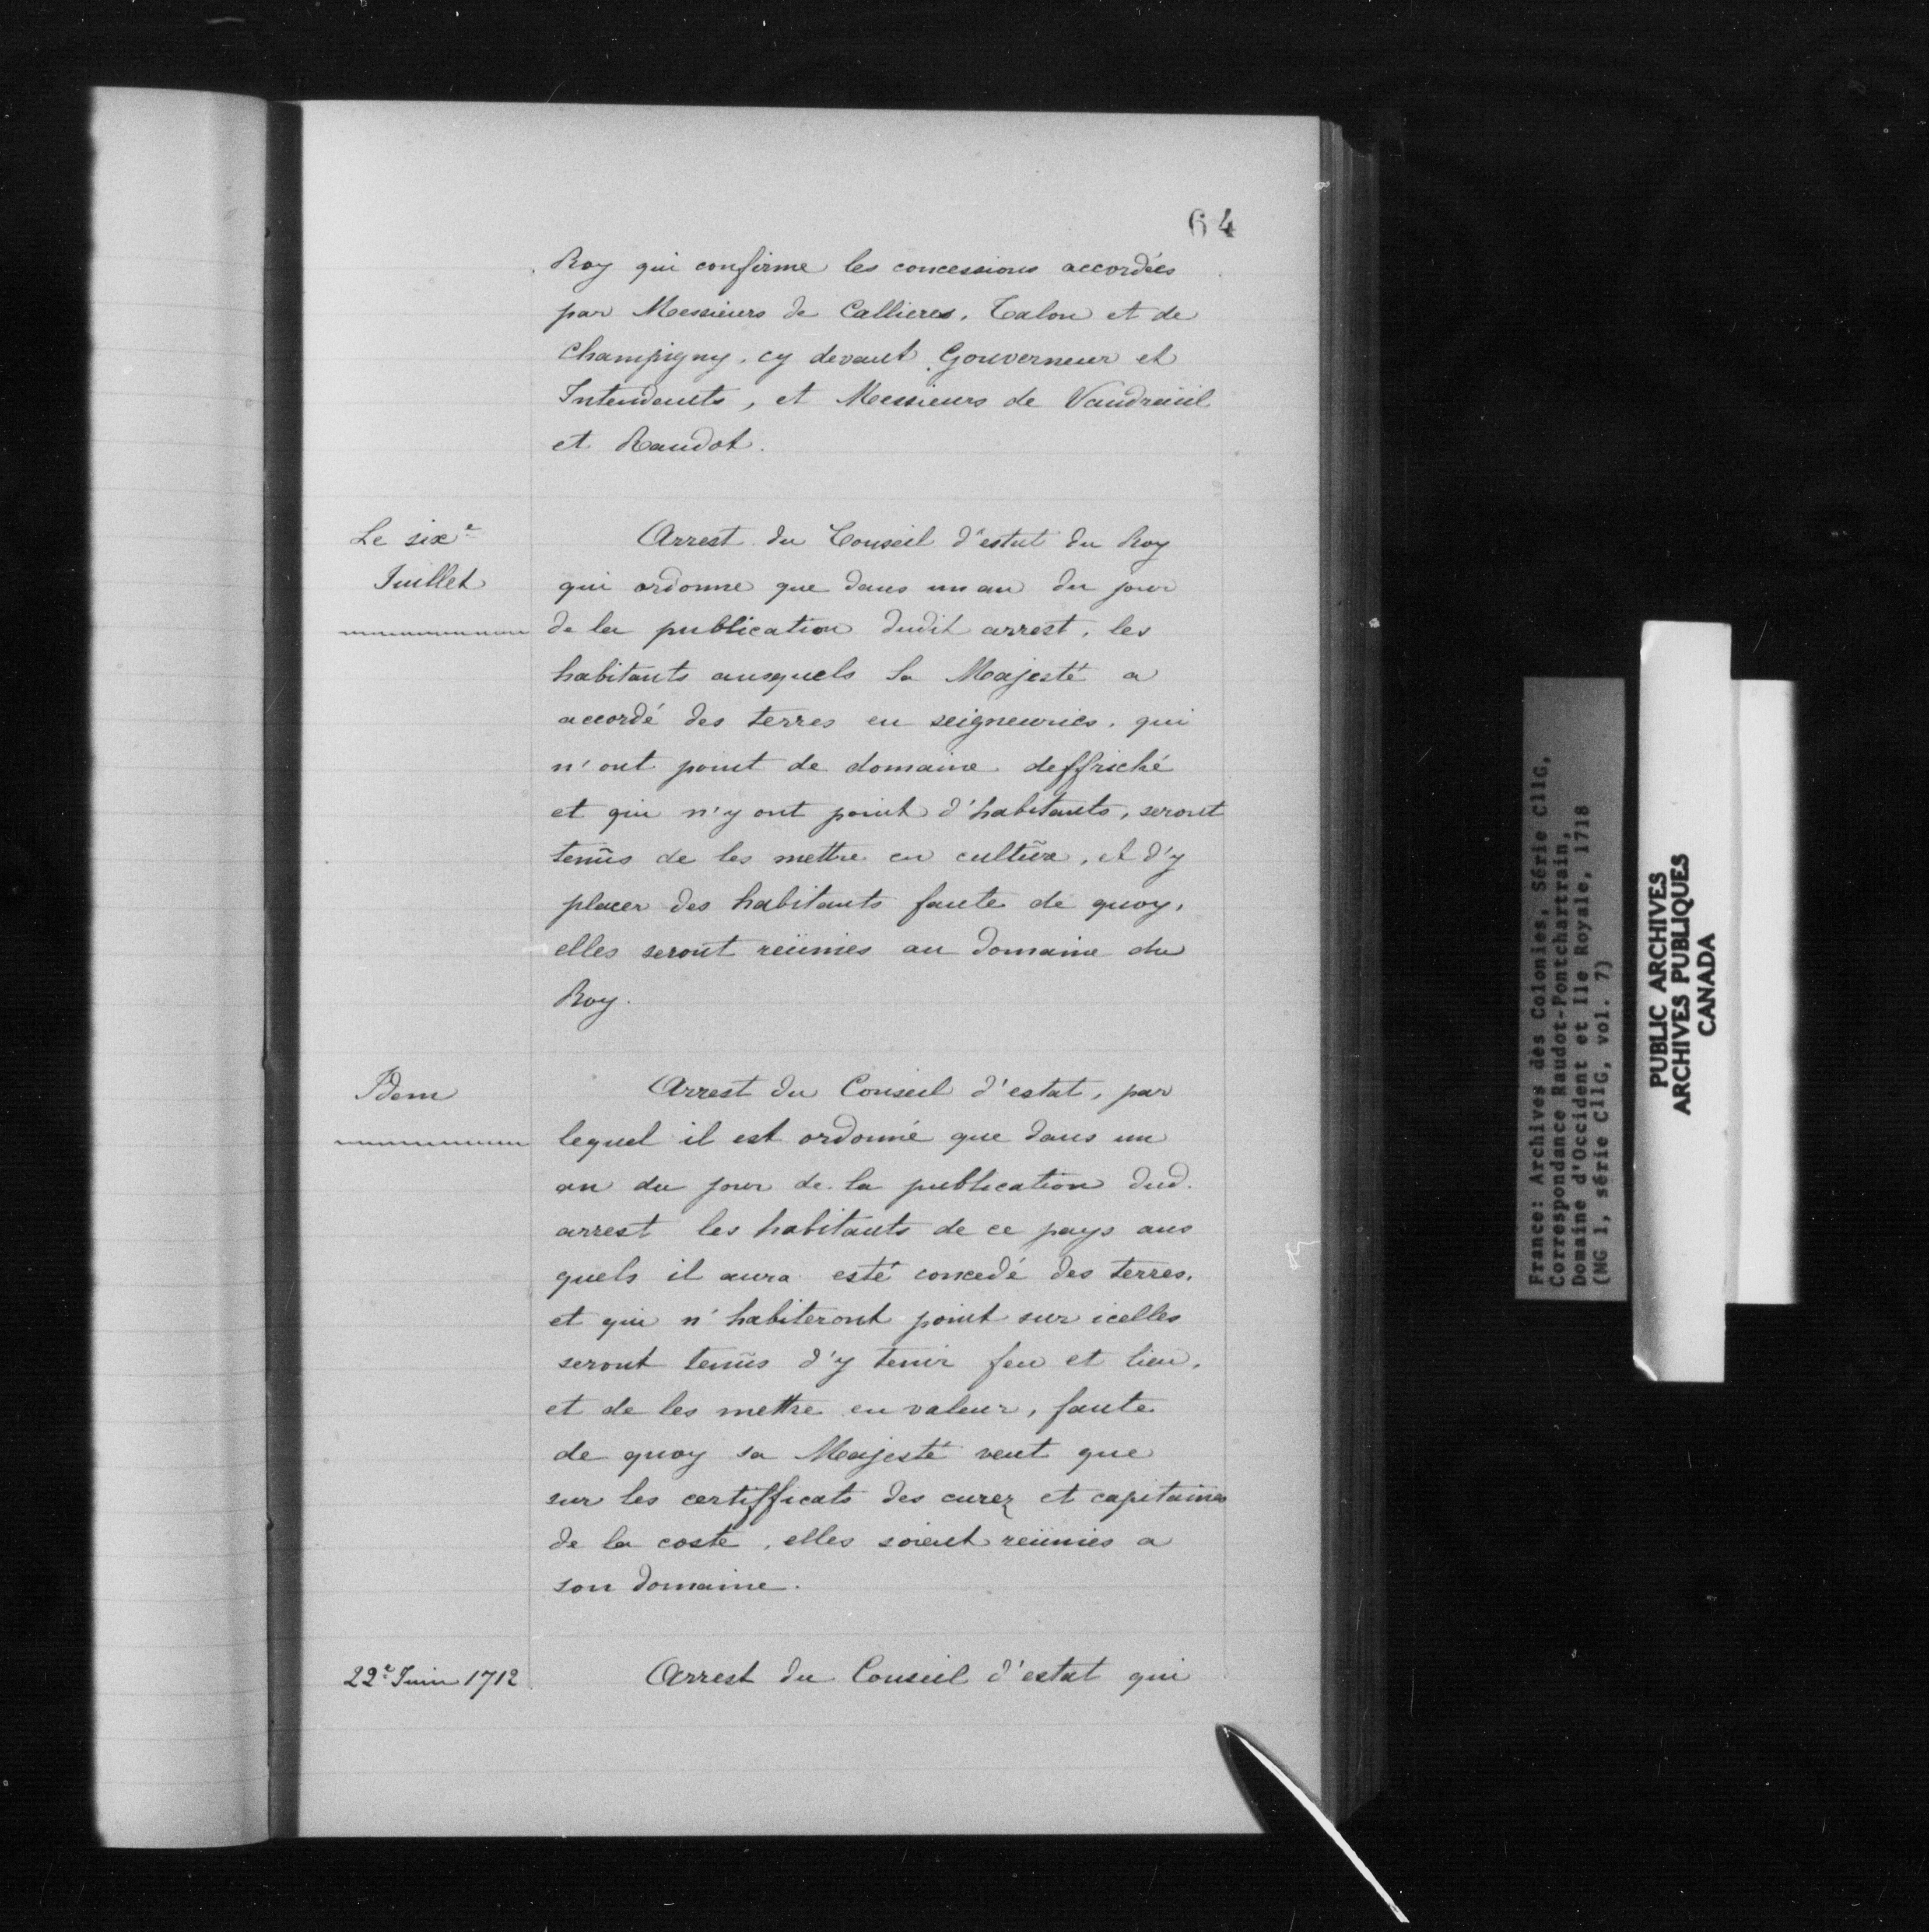 64
Roy qui confirme les concessions accordées
par Messieurs de Callieres, Talon et de
Champigny, cy devant Gouverneur et
Intendents, et Messieurs de Vaudreüil
et Raudot.
Le six.e
Juillet
Arrest du Conseil d'estat du Roy
qui ordonne que dans un an du jour
de la publication dudit arrest, les
habitants ausquels Sa Majesté a
accordé des terres en seigneuries, qui
n'ont point de domaine deffriché
et qui n'y ont point d'habitants, seront
tenüs de les mettre en cultüre, et d'y
placer des habitants faute de quoy,
elles seront reünies au Domaine du
Roy.
Idem
Arrest du Conseil d'estat, par
lequel il est ordonné que dans un
an du jour de la publication dud.
arrest les habitants de ce pays aus
quels il aura esté concedé des terres,
et qui n'habiteront point sur icelles
seront tenüs d'y tenir feu et lieu,
et de les mettre en valeur, faute
de quoy sa Majesté veut que
sur les certifficats des curez et capitaines
de la coste, elles soient reünies a
son Domaine.
22.e Juin 1712
Arrest du Conseil d'estat qui
France: Archives des Colonies, Série C11G,
Correspondance Raudot-Pontchartrain,
Domaine d'Occident et Ile Royale, 1718
(MG 1, série C11G, vol. 7)
PUBLIC ARCHIVES
ARCHIVES PUBLIQUES
CANADA